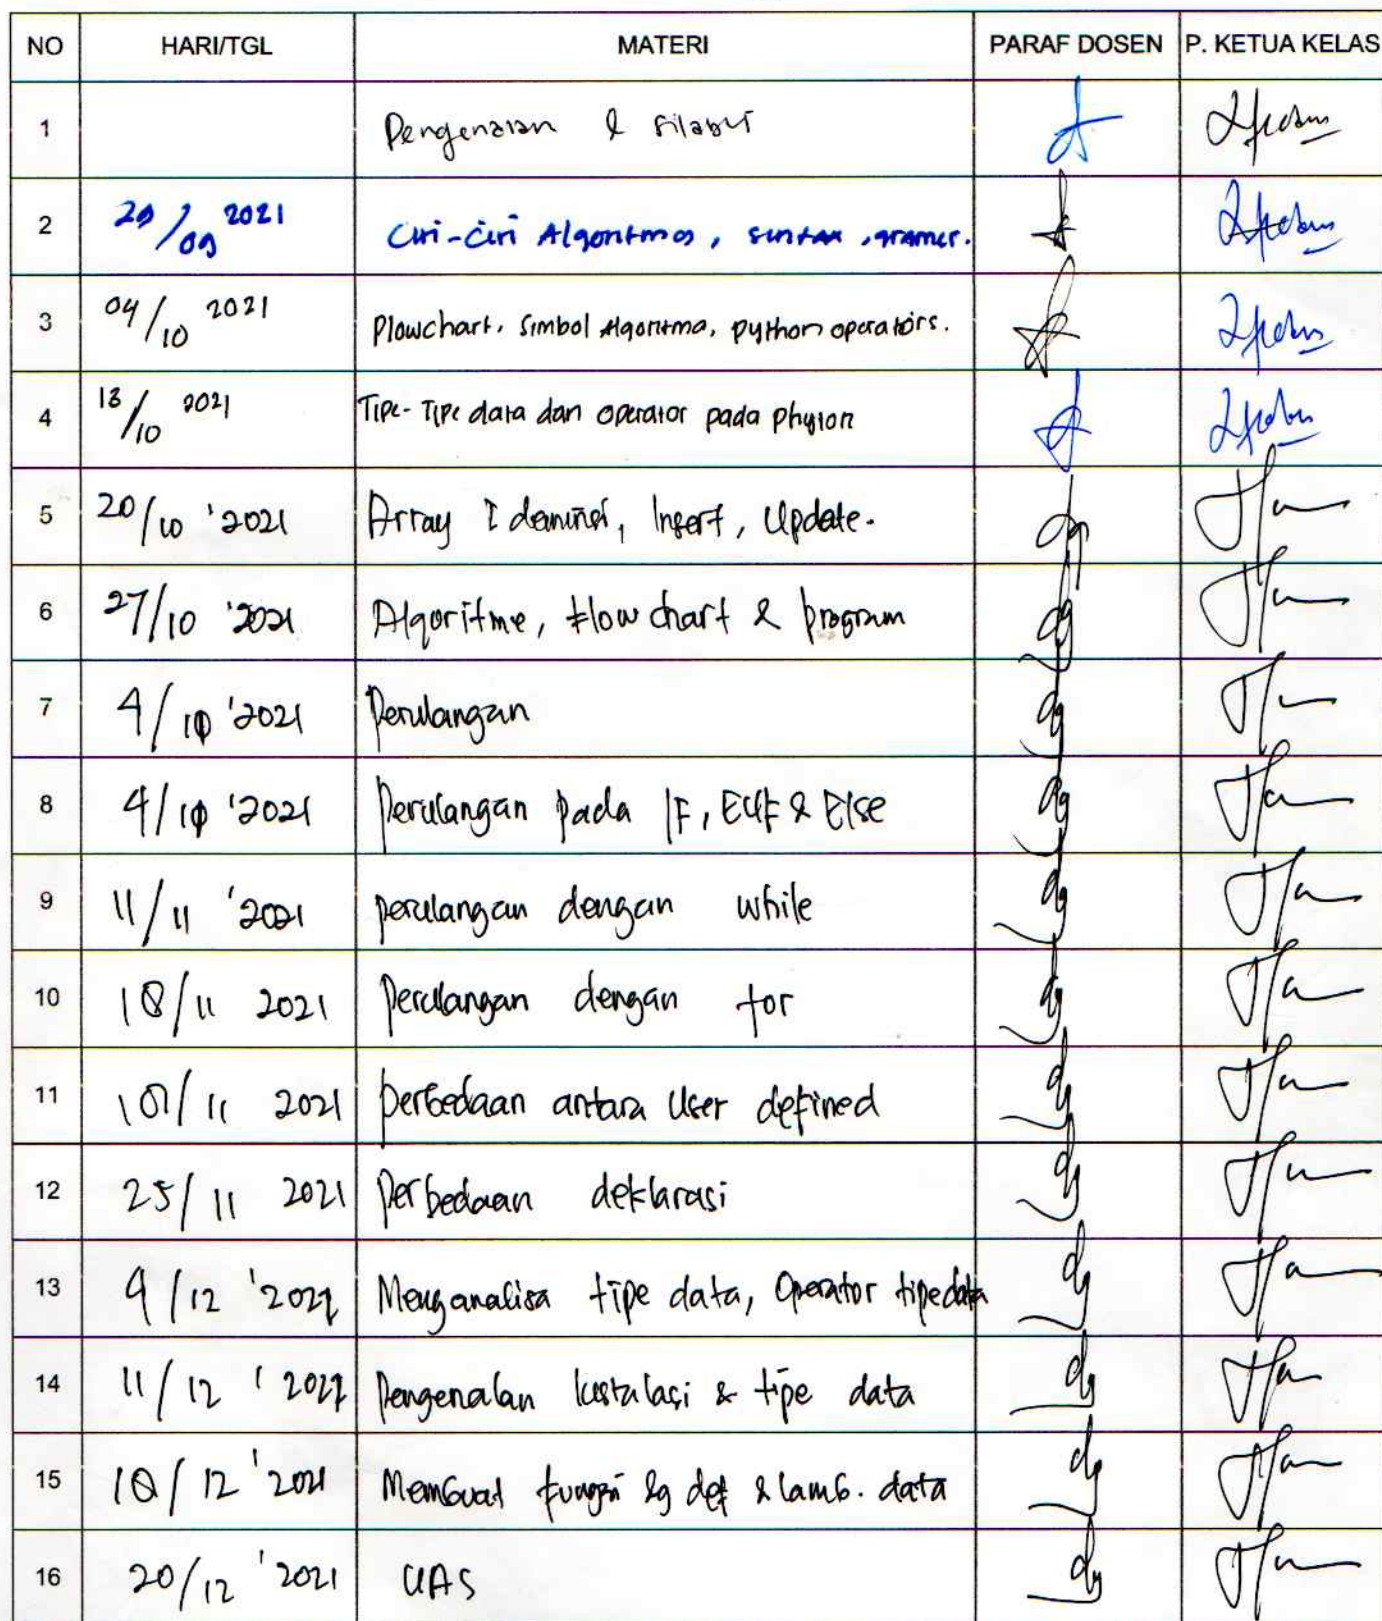 NO HARI/TGL MATERI PARAF DOSEN P. KETUA KELAS
1 Pengenalan & silabus
2 29/09 2021 Ciri-Ciri Algoritmos, sintax, gramer.
3 04/10 2021 Plowchart, Simbol Algoritma, python operators.
4 13/10 2021 Tipe-Tipe data dan operator pada phyton
5 20/10 '2021 Array I deminsi, Insert, Update.
6 27/10 '2021 Algoritme, flow chart & program
7 4/10 '2021 Perulangan
8 4/10 '2021 Perulangan pada IF, Elif & Else
9 11/11 '2021 perulangan dengan while
10 18/11 2021 Perulangan dengan for
11 /11 2021 perbedaan antara User defined
12 25/11 2021 Perbedaan deklarasi
13 9/12 '2021 Menganalisa tipe data, Operator tipe data
14 11/12 '2021 Pengenalan Instalasi & tipe data
15 18/12 '2021 Membuat fungsi dg def & lamb. data
16 20/12 '2021 UAS